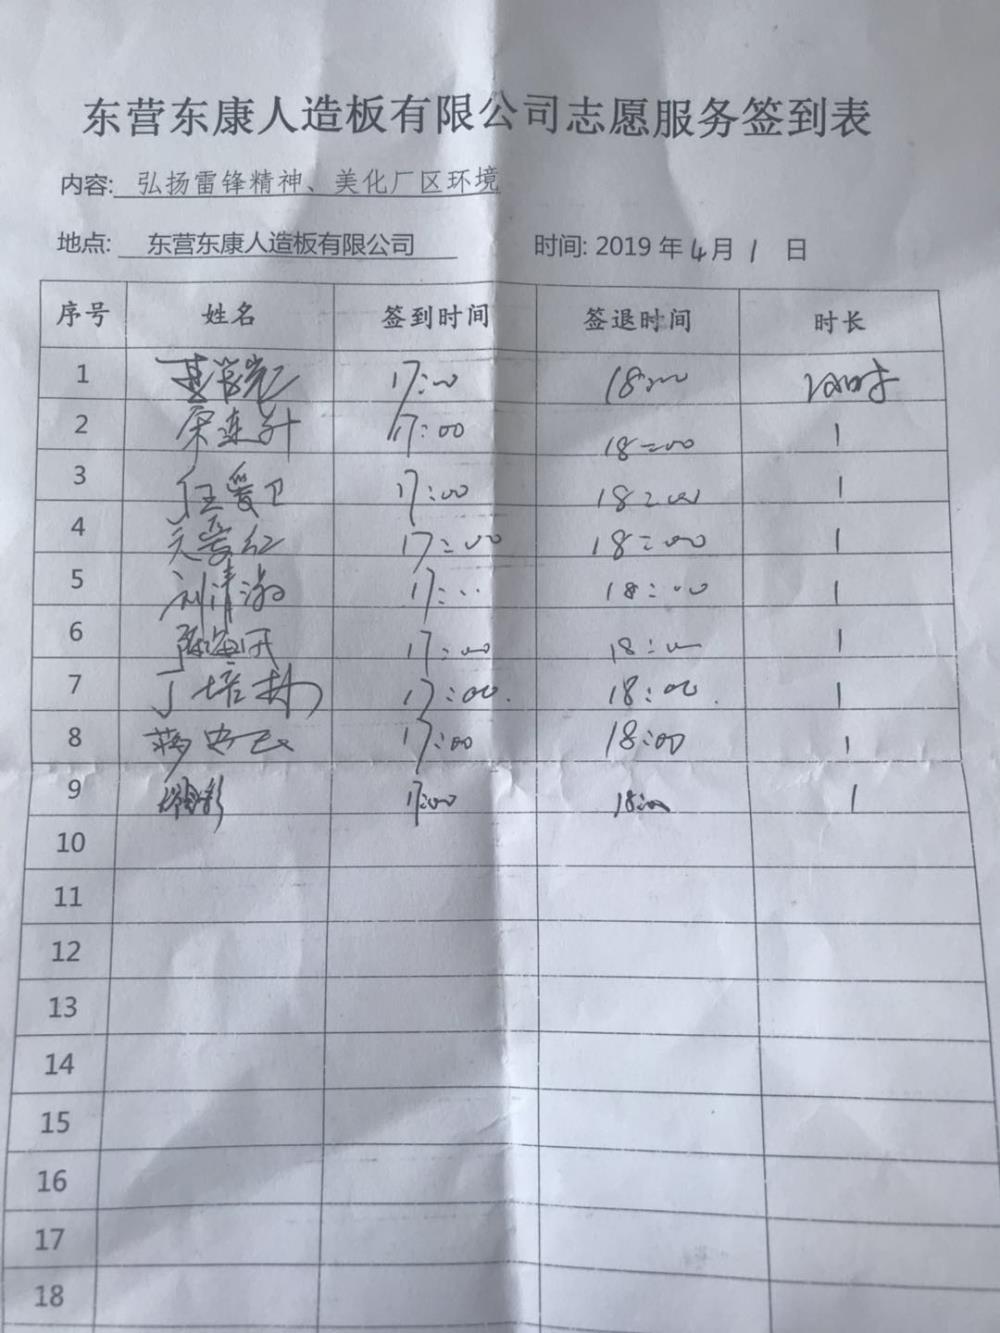 东营东康人造板有限公司志愿服务签到表
内容: 弘扬雷锋精神、美化厂区环境
地点: 东营东康人造板有限公司 时间: 2019 年 4 月 1 日
序号 姓名 签到时间 签退时间 时长
1 17:00 18:00 1小时
2 17:00 18:00 1
3 任爱卫 17:00 18:00 1
4 17:00 18:00 1
5 刘清淑 17:00 18:00 1
6 17:00 18:00 1
7 丁培林 17:00. 18:00. 1
8 17:00 18:00 1
9 17:00 18:00 1
10
11
12
13
14
15
16
17
18